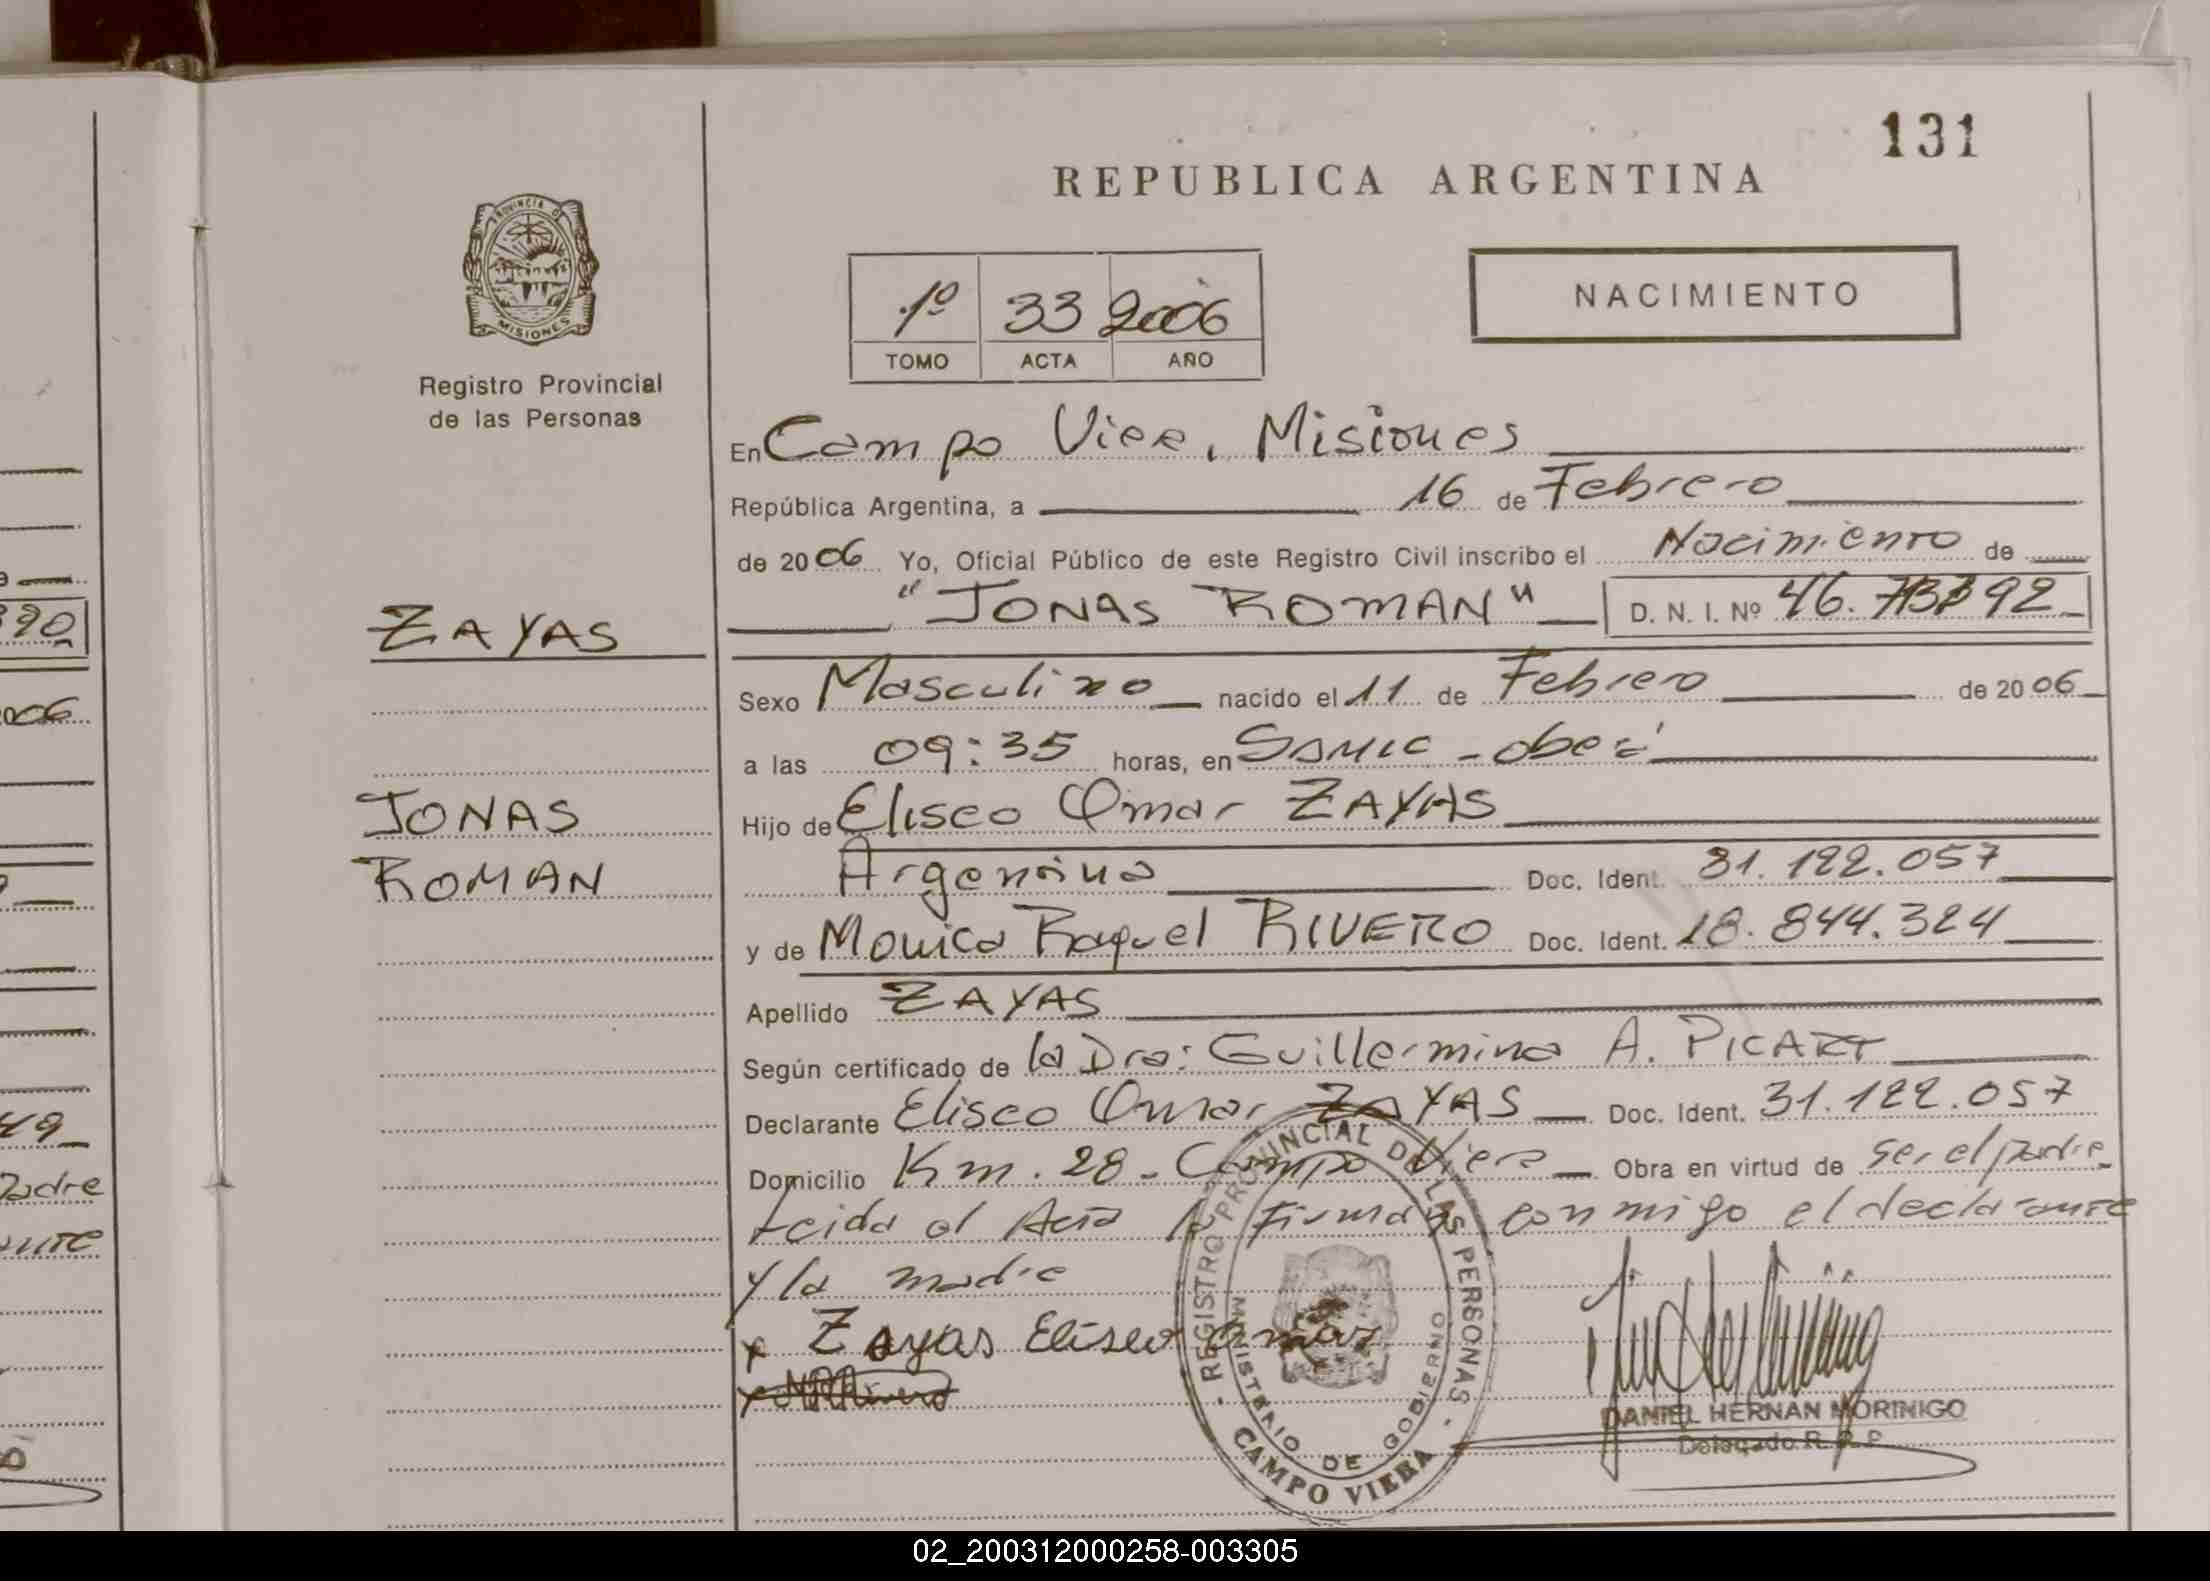 131
REPUBLICA ARGENTINA
PROVINCIA DE
MISIONES
Registro Provincial
de las Personas
1º 33 2006
TOMO ACTA AÑO
NACIMIENTO
En Campo Viera, Misiones
República Argentina, a 16 de Febrero
de 2006 Yo, Oficial Público de este Registro Civil inscribo el Nacimiento de
"JONAS ROMAN" D. N. I. Nº
ZAYAS
Sexo Masculino nacido el 11 de Febrero de 2006
a las 09:35 horas, en SAMIC - oberá
JONAS
Hijo de Eliseo Omar ZAYAS
ROMAN
Argentino Doc. Ident. 31.122.057
y de Monica Raquel RIVERO Doc. Ident. 18.844.324
Apellido ZAYAS
Según certificado de la Dra: Guillermina A. PICART
Declarante Eliseo Omar ZAYAS Doc. Ident. 31.122.057
Domicilio Km. 28 - Campo Viera Obra en virtud de ser el padre
Leida el Acta la Firman conmigo el declarante
y la madre
x Zayas Eliseo omar
x
REGISTRO PROVINCIAL DE LAS PERSONAS
MINISTERIO DE GOBIERNO
CAMPO VIERA
DANIEL HERNAN MORINIGO
Delegado R. P. P.
90
2006
49
Padre
02_200312000258-003305